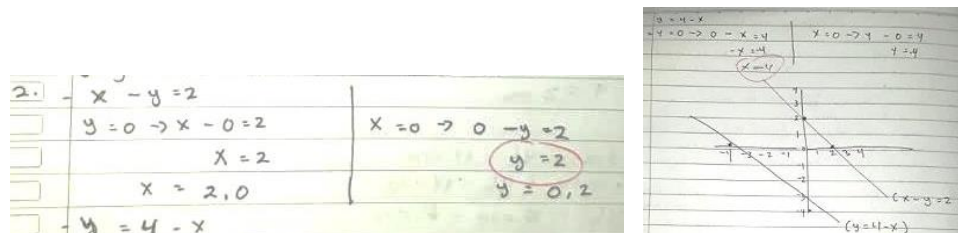 2. - x - y = 2
y = 0 -> x - 0 = 2
x = 2
x = 2,0
x = 0 -> 0 - y = 2
y = 2
y = 0,2
- y = 4 - x
y = 4 - x
- y = 0 -> 0 - x = 4
-x = 4
x = -4
x = 0 -> y - 0 = 4
y = 4
4
3
2
1
-4 -3 -2 -1 0 1 2 3 4
-1
-2
-3
-4
(x - y = 2
(y = 4 - x)